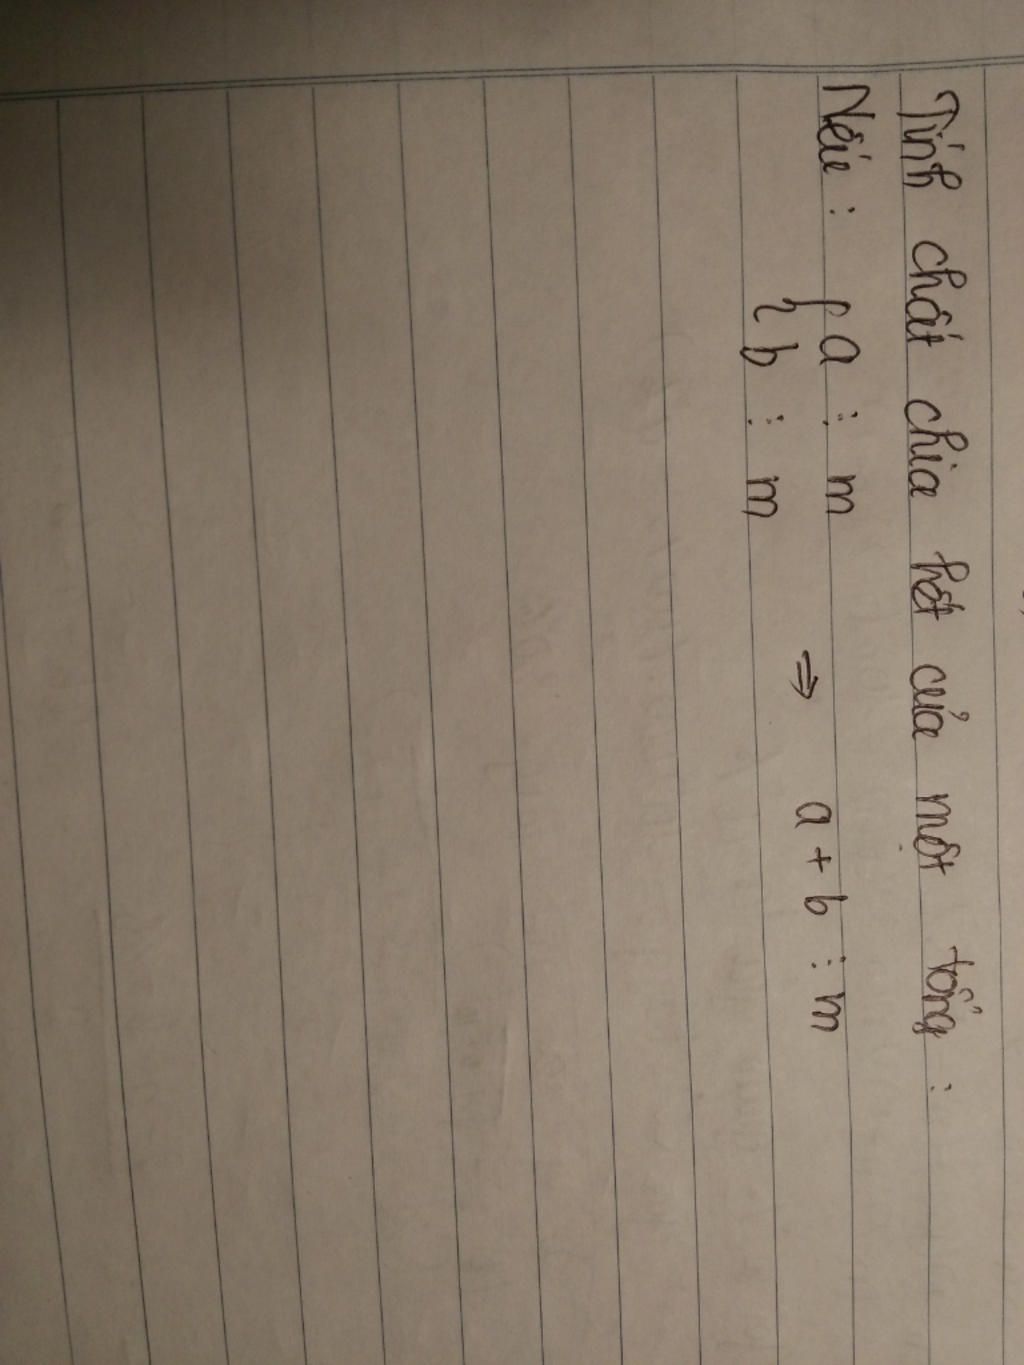 Tính chất chia hết của một tổng :
Nếu : { a ⋮ m
b ⋮ m
⇒ a + b ⋮ m